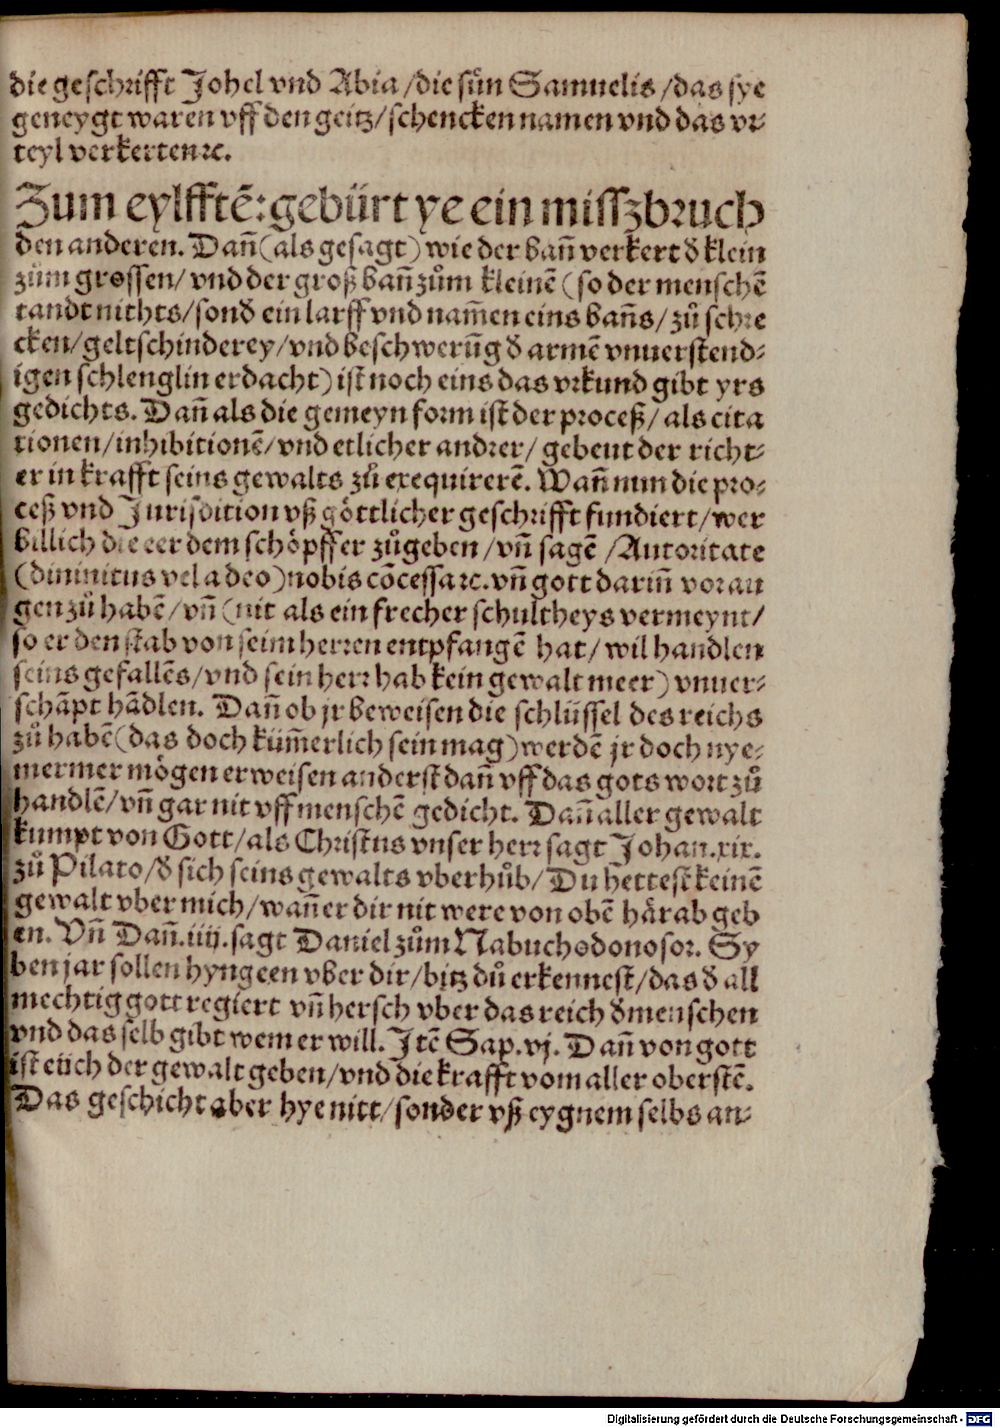 die geschrifft Johel vnd Abia /die sün Samuelis /das sye
geneygt waren vff den geitz/schencken namen vnd das vr⸗
teyl verkerten ꝛc.
Zum eylfftē: gebürt ye ein missȝbruch
den anderen. Dañ (als gesagt) wie der bañ verkert ď klein
zům grossen/ vnd der groß bañ zům kleinē (so der menschē
tandt nichts/sonď ein larff vnd nam̄en eins bañs/zů schre
cken/geltschinderey/vnd beschwerūg ď armē vnuerstend⸗
igen schlenglin erdacht) ist noch eins das vrkund gibt yrs
gedichts. Dañ als die gemeyn form ist der proceß/ als cita
tionen/inhibitionē/vnd etlicher andrer/ gebeut der richt⸗
er in krafft seins gewalts zů exequirerē. Wañ nun die pro⸗
ceß vnd Jurisdition vß göttlicher geschrifft fundiert/wer
billich die eer dem schöpffer zůgeben /vñ sagē /Autoritate
(diuinitus vel a deo) nobis cōcessa ꝛc. vñ gott dariñ vor au
gen zů habē/vñ (nit als ein frecher schultheys vermeynt/
so er den stab von seim herren entpfangē hat/ wil handlen
seins gefallēs/vnd sein herr hab kein gewalt meer) vnuer⸗
schāpt hādlen. Dañ ob jr beweisen die schlüssel des reichs
zů habē (das doch küm̄erlich sein mag) werdē jr doch nye⸗
mermer mögen erweisen anderst dañ vff das gots wort zů
handlē/vñ gar nit vff menschē gedicht. Dañ aller gewalt
kumpt von Gott/als Christus vnser herr sagt Johan.xix.
zů Pilato/ď sich seins gewalts vberhůb/Du hettest keinē
gewalt vber mich/wañ er dir nit were von obē härab geb
en. Vñ Dañ.iiij.sagt Daniel zům Nabuchodonosor. Sy
ben jar sollen hyngeen vber dir/bitz dů erkennest/das ď all
mechtig gott regiert vñ hersch vber das reich ďmenschen
vnd das selb gibt wem er will. Jtē Sap.vj. Dañ von gott
ist etich der gewalt geben/vnd die krafft vom aller oberstē.
Das geschicht aber hye nitt/sonder vß eygnem selbs an⸗
Digitalisierung gefördert durch die Deutsche Forschungsgemeinschaft - DFG